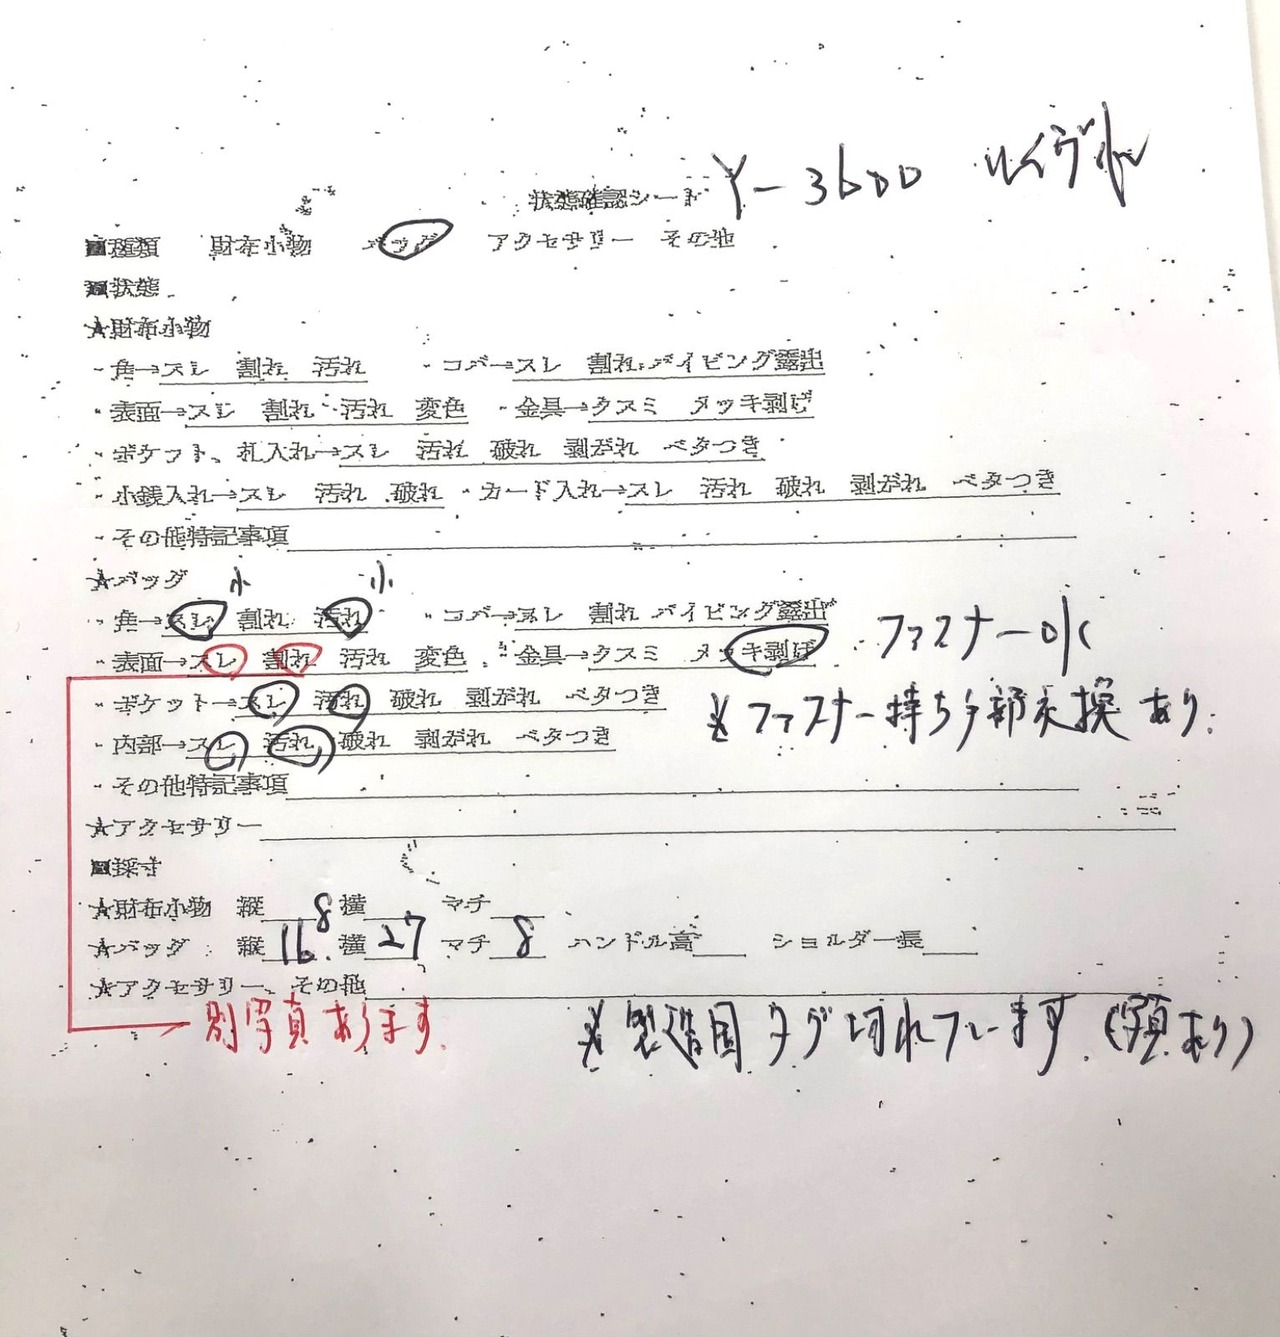 状態確認シート Y-3600 ルイヴィ
■種類 財布小物 バッグ アクセサリー その他
■状態
★財布小物
・角→スレ 割れ 汚れ ・コバ→スレ 割れ パイピング露出
・表面→スレ 割れ 汚れ 変色 ・金具→クスミ メッキ剥げ
・ポケット、札入れ→スレ 汚れ 破れ 剥がれ ベタつき
・小銭入れ→スレ 汚れ 破れ ・カード入れ→スレ 汚れ 破れ 剥がれ ベタつき
・その他特記事項
★バッグ 小 小
・角→スレ 割れ 汚れ ・コバ→スレ 割れ パイピング露出
・表面→スレ 割れ 汚れ 変色 ・金具→クスミ メッキ剥げ ファスナーok
・ポケット→スレ 汚れ 破れ 剥がれ ベタつき ※ファスナー持ち手部交換あり.
・内部→スレ 汚れ 破れ 剥がれ ベタつき
・その他特記事項
★アクセサリー
■採寸
★財布小物 縦 8 横 マチ
★バッグ 縦 16. 横 27 マチ 8 ハンドル高 ショルダー長
★アクセサリー、その他
別写真あります. ※製造国タグ切れています.(写真あり)